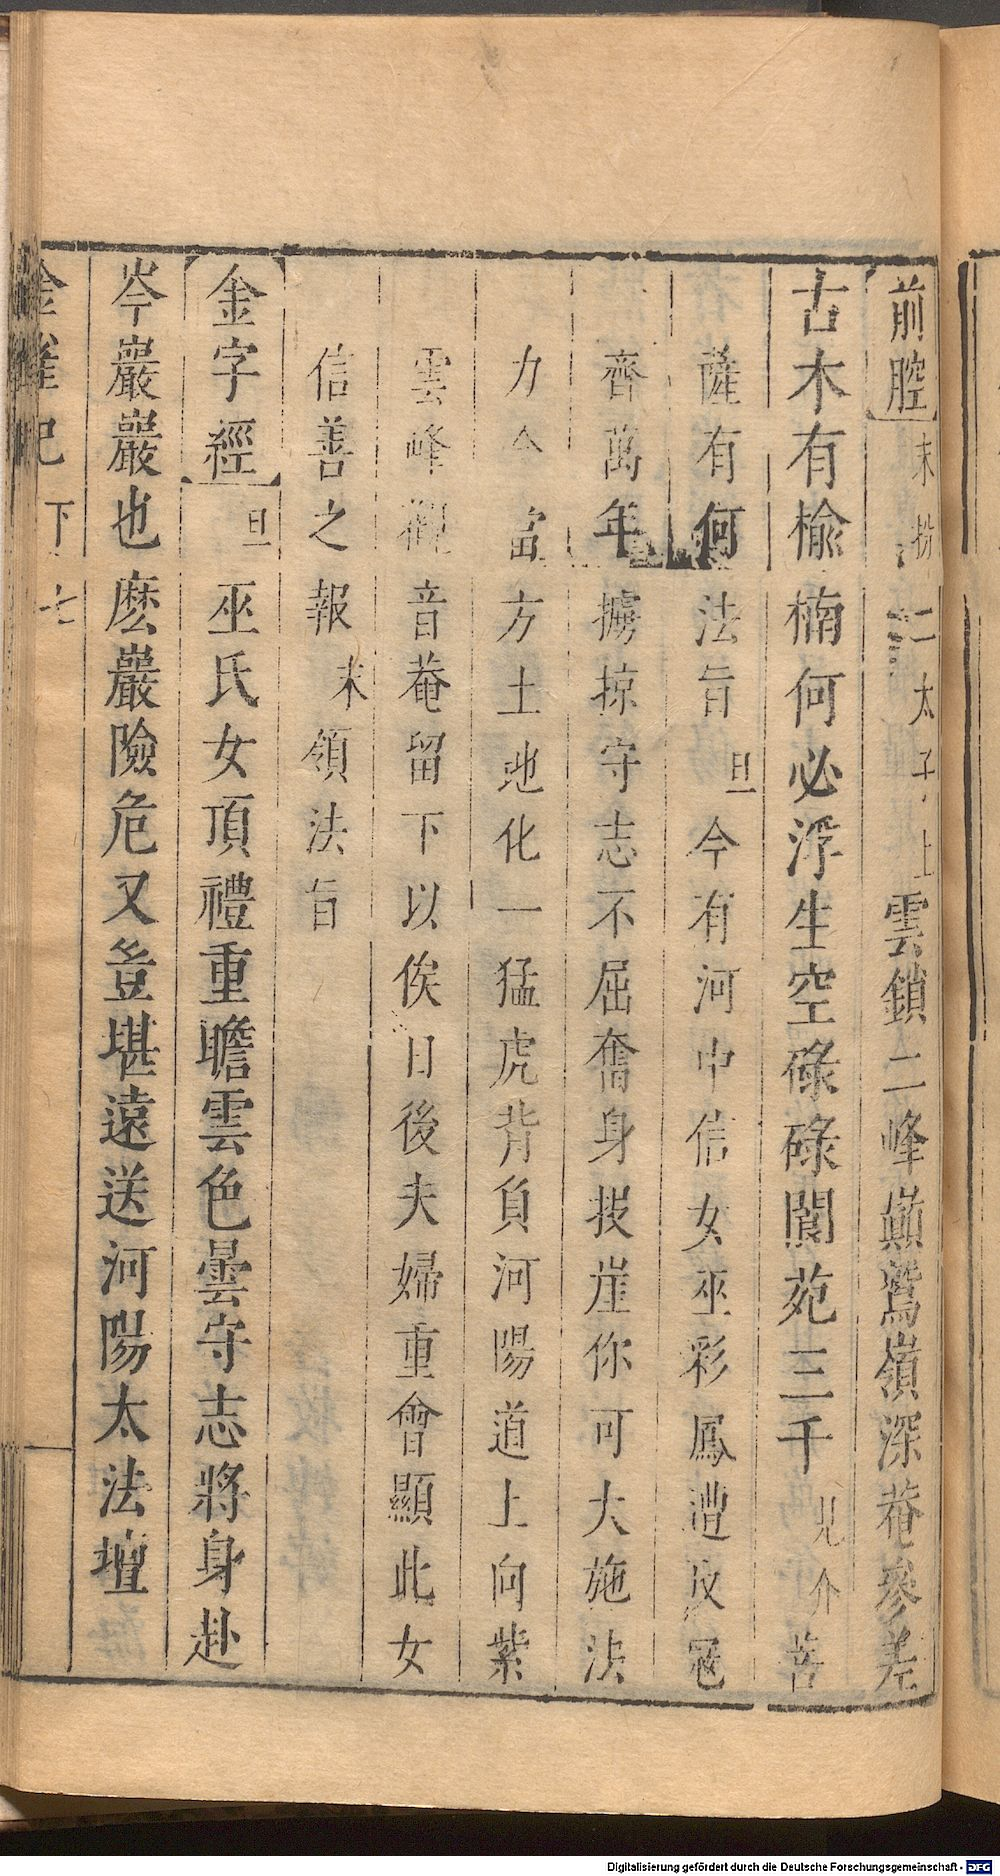 前腔末扮二太子上雲鎖二峰巔鷲嶺深菴參差
古木有楡楠何必浮生空碌碌閬苑三千見介菩
薩有何法旨旦今有河中信女巫彩鳳遭皮冠
齊萬年擄掠守志不屈奮身投崖你可大施法
力令當方土地化一猛虎背負河陽道上向紫
雲峰觀音菴留下以俟日後夫婦重會顯此女
信善之報末領法旨
金字經旦巫氏女頂禮重瞻雲色曇守志將身赴
岑巖巖也麽巖險危又豈堪遠送河陽太法壇
金雀記 下 七
Digitalisierung gefördert durch die Deutsche Forschungsgemeinschaft - DFG